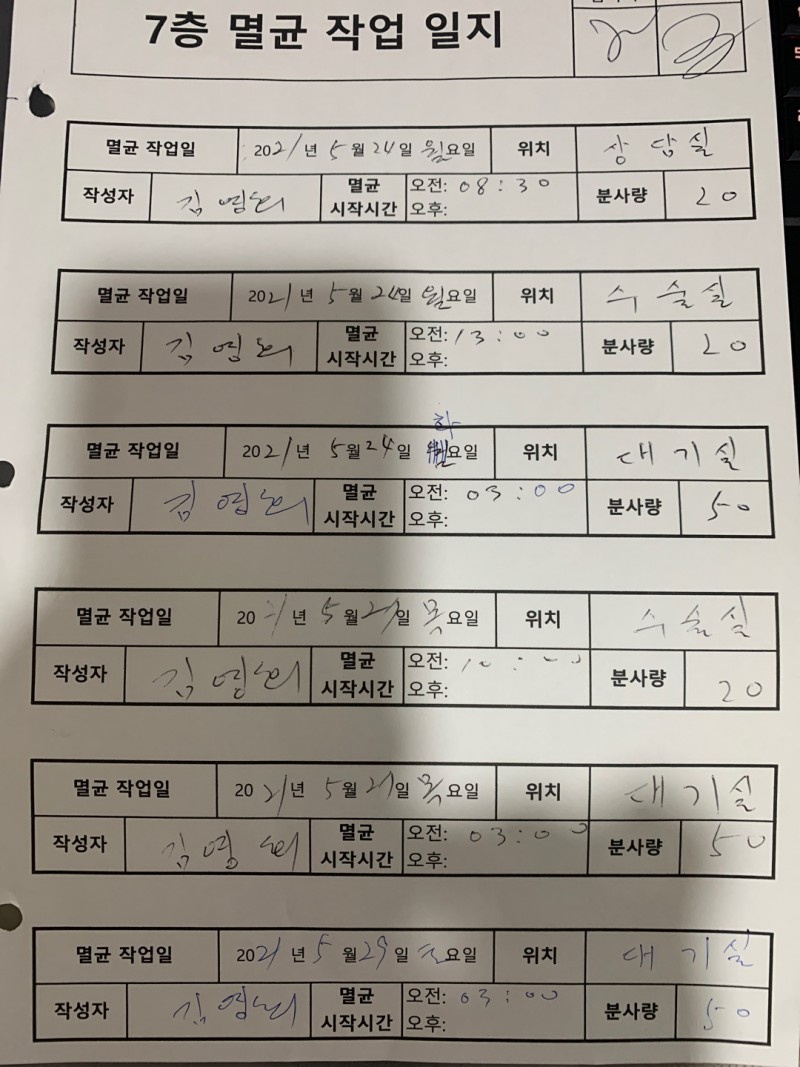 7층 멸균 작업 일지
멸균 작업일 2021년 5월 24일 월요일 위치 상담실
작성자 김영희 멸균 시작시간 오전: 08:30 오후: 분사량 20
멸균 작업일 2021년 5월 24일 월요일 위치 수술실
작성자 김영희 멸균 시작시간 오전: 13:00 오후: 분사량 20
멸균 작업일 2021년 5월 24일 화요일 위치 대기실
작성자 김영희 멸균 시작시간 오전: 03:00 오후: 분사량 50
멸균 작업일 2021년 5월 일 목요일 위치 수술실
작성자 김영희 멸균 시작시간 오전: 10:00 오후: 분사량 20
멸균 작업일 2021년 5월 일 목요일 위치 대기실
작성자 김영희 멸균 시작시간 오전: 03:00 오후: 분사량 50
멸균 작업일 2021년 5월 29일 토요일 위치 대기실
작성자 김영희 멸균 시작시간 오전: 03:00 오후: 분사량 50